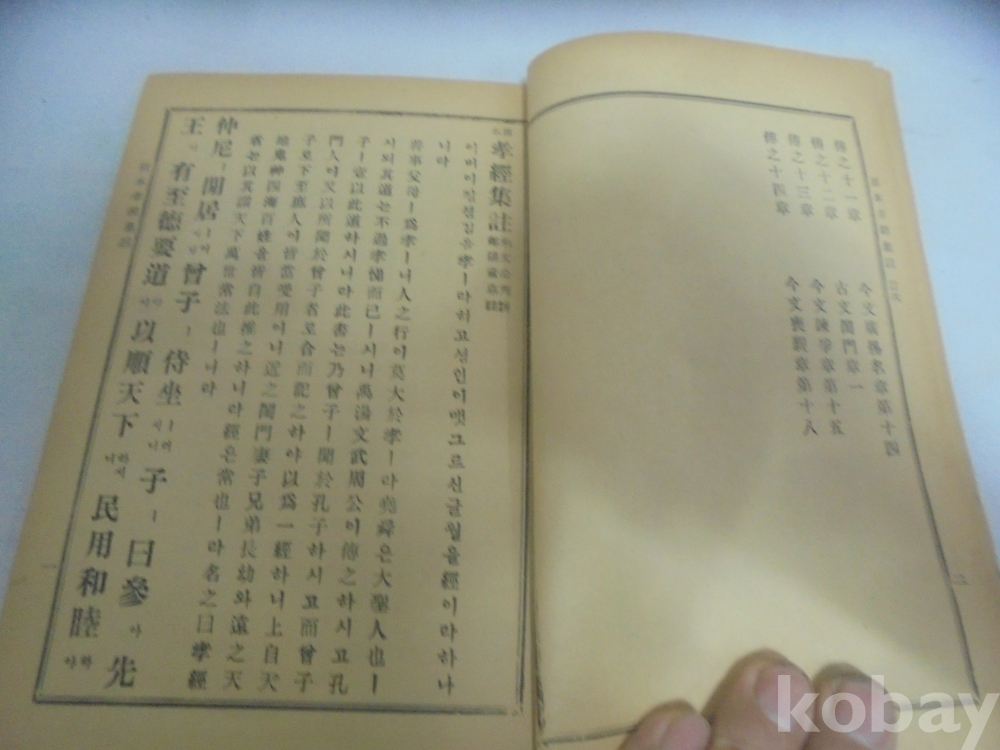 傳之十一章 今文廣揚名章第十四
傳之十二章 古文閨門章一
傳之十三章 今文諫爭章第十五
傳之十四章 今文喪親章第十八
二
孝經集註
이버이 孝ㅣ라히고성인이맷그르신글월을經이라하나
니라
善事父母ㅣ爲孝ㅣ니人之行이莫大於孝ㅣ라堯舜은大聖人也ㅣ
시되其道는不過孝悌而已ㅣ시니禹湯文武周公이傳之하시고孔
子ㅣ壹以此道하시니라此書는乃曾子ㅣ聞於孔子하시고而曾子
門人이又以所聞於曾子者로合而記之하야以爲一經하니上自天
子로下至庶人이皆當受用이니近之閨門妻子兄弟長幼와遠之天
地鬼神四海百姓을皆自此推之하니라經은常也ㅣ라名之曰孝經
者는以其謂天下萬世常法也ㅣ니라
仲尼ㅣ閒居ㅣ어시늘曾子ㅣ侍坐ㅣ러시니子ㅣ曰參아先
王이有至德要道하야以順天下하시니民用和睦하야
一
kobay